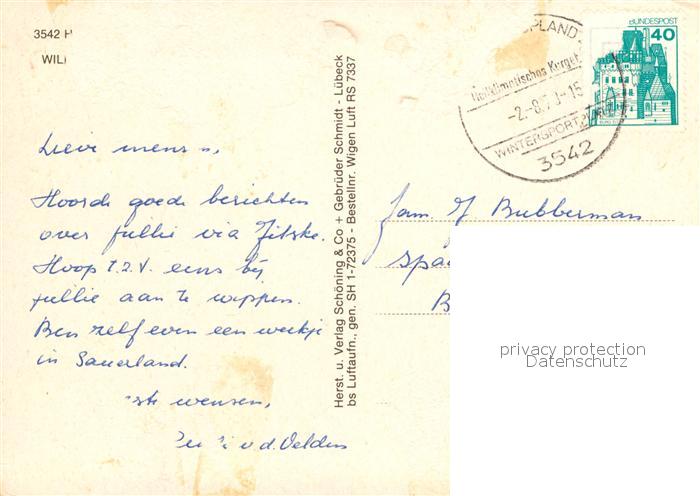 3542
WIL
Lieve mens
Hoorde goede berichten
over jullie via Jitske.
Hoop t.z.t. eens bij
jullie aan te wippen.
Ben zelf even een weekje
in Sauerland.
wensen,
v.d. Velden
Herst. u. Verlag Schöning & Co + Gebrüder Schmidt - Lübeck
bs Luftaufn., gen. SH 1-72375 - Bestellnr. Wigen Luft RS 7337
UPLAND
Heilklimatisches Kurgeb.
-2.-8.7 -15
WINTERSPORTPLATZ
3542
DEUTSCHE BUNDESPOST
40
Fam. J Bubberman
spa
B
privacy protection
Datenschutz